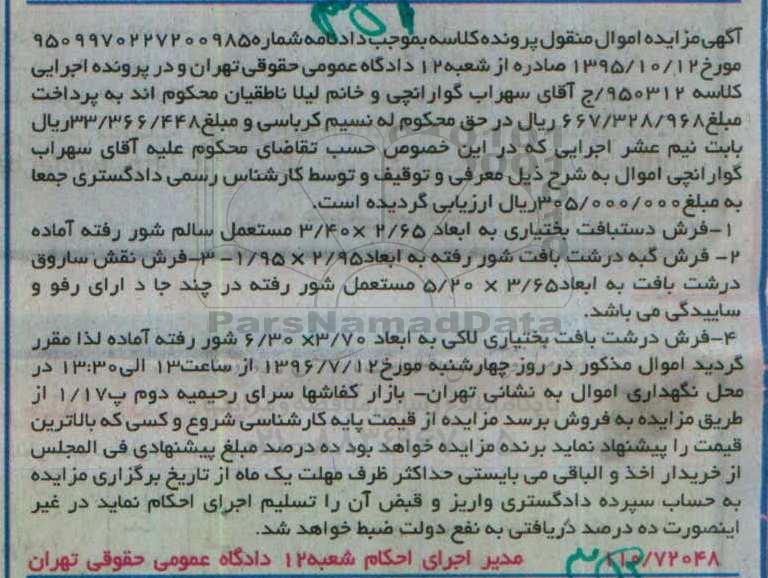 آگهی مزایده اموال منقول پرونده کلاسه بموجب دادنامه شماره ۹۵۰۹۹۷۰۲۲۷۲۰۰۹۸۵
مورخ ۱۳۹۵/۱۰/۱۲ صادره از شعبه ۱۲ دادگاه عمومی حقوقی تهران و در پرونده اجرایی
کلاسه ۹۵۰۳۱۲/ج آقای سهراب گوارانچی و خانم لیلا ناطقیان محکوم اند به پرداخت
مبلغ ۶۶۷/۳۲۸/۹۶۸ ریال در حق محکوم له نسیم کرباسی و مبلغ ۳۳/۳۶۶/۴۴۸ریال
بابت نیم عشر اجرایی که در این خصوص حسب تقاضای محکوم علیه آقای سهراب
گوارانچی اموال به شرح ذیل معرفی و توقیف و توسط کارشناس رسمی دادگستری جمعا
به مبلغ ۳۰۵/۰۰۰/۰۰۰ریال ارزیابی گردیده است.
۱-فرش دستبافت بختیاری به ابعاد ۲/۶۵ ×۳/۴۰ مستعمل سالم شور رفته آماده
۲- فرش گبه درشت بافت شور رفته به ابعاد ۲/۹۵ × ۱/۹۵- ۳-فرش نقش ساروق
درشت بافت به ابعاد ۳/۶۵ × ۵/۲۰ مستعمل شور رفته در چند جا د ارای رفو و
ساییدگی می باشد.
ParsNamadData
۴-فرش درشت بافت بختیاری لاکی به ابعاد ۳/۷۰× ۶/۳۰ شور رفته آماده لذا مقرر
گردید اموال مذکور در روز چهارشنبه مورخ ۱۳۹۶/۷/۱۲ از ساعت ۱۳ الی ۱۳:۳۰ در
محل نگهداری اموال به نشانی تهران- بازار کفاشها سرای رحیمیه دوم پ ۱/۱۷ از
طریق مزایده به فروش برسد مزایده از قیمت پایه کارشناسی شروع و کسی که بالاترین
قیمت را پیشنهاد نماید برنده مزایده خواهد بود ده درصد مبلغ پیشنهادی فی المجلس
از خریدار اخذ و الباقی می بایستی حداکثر ظرف مهلت یک ماه از تاریخ برگزاری مزایده
به حساب سپرده دادگستری واریز و قبض آن را تسلیم اجرای احکام نماید در غیر
اینصورت ده درصد دریافتی به نفع دولت ضبط خواهد شد.
۱۱۰/۷۲۰۴۸ مدیر اجرای احکام شعبه ۱۲ دادگاه عمومی حقوقی تهران